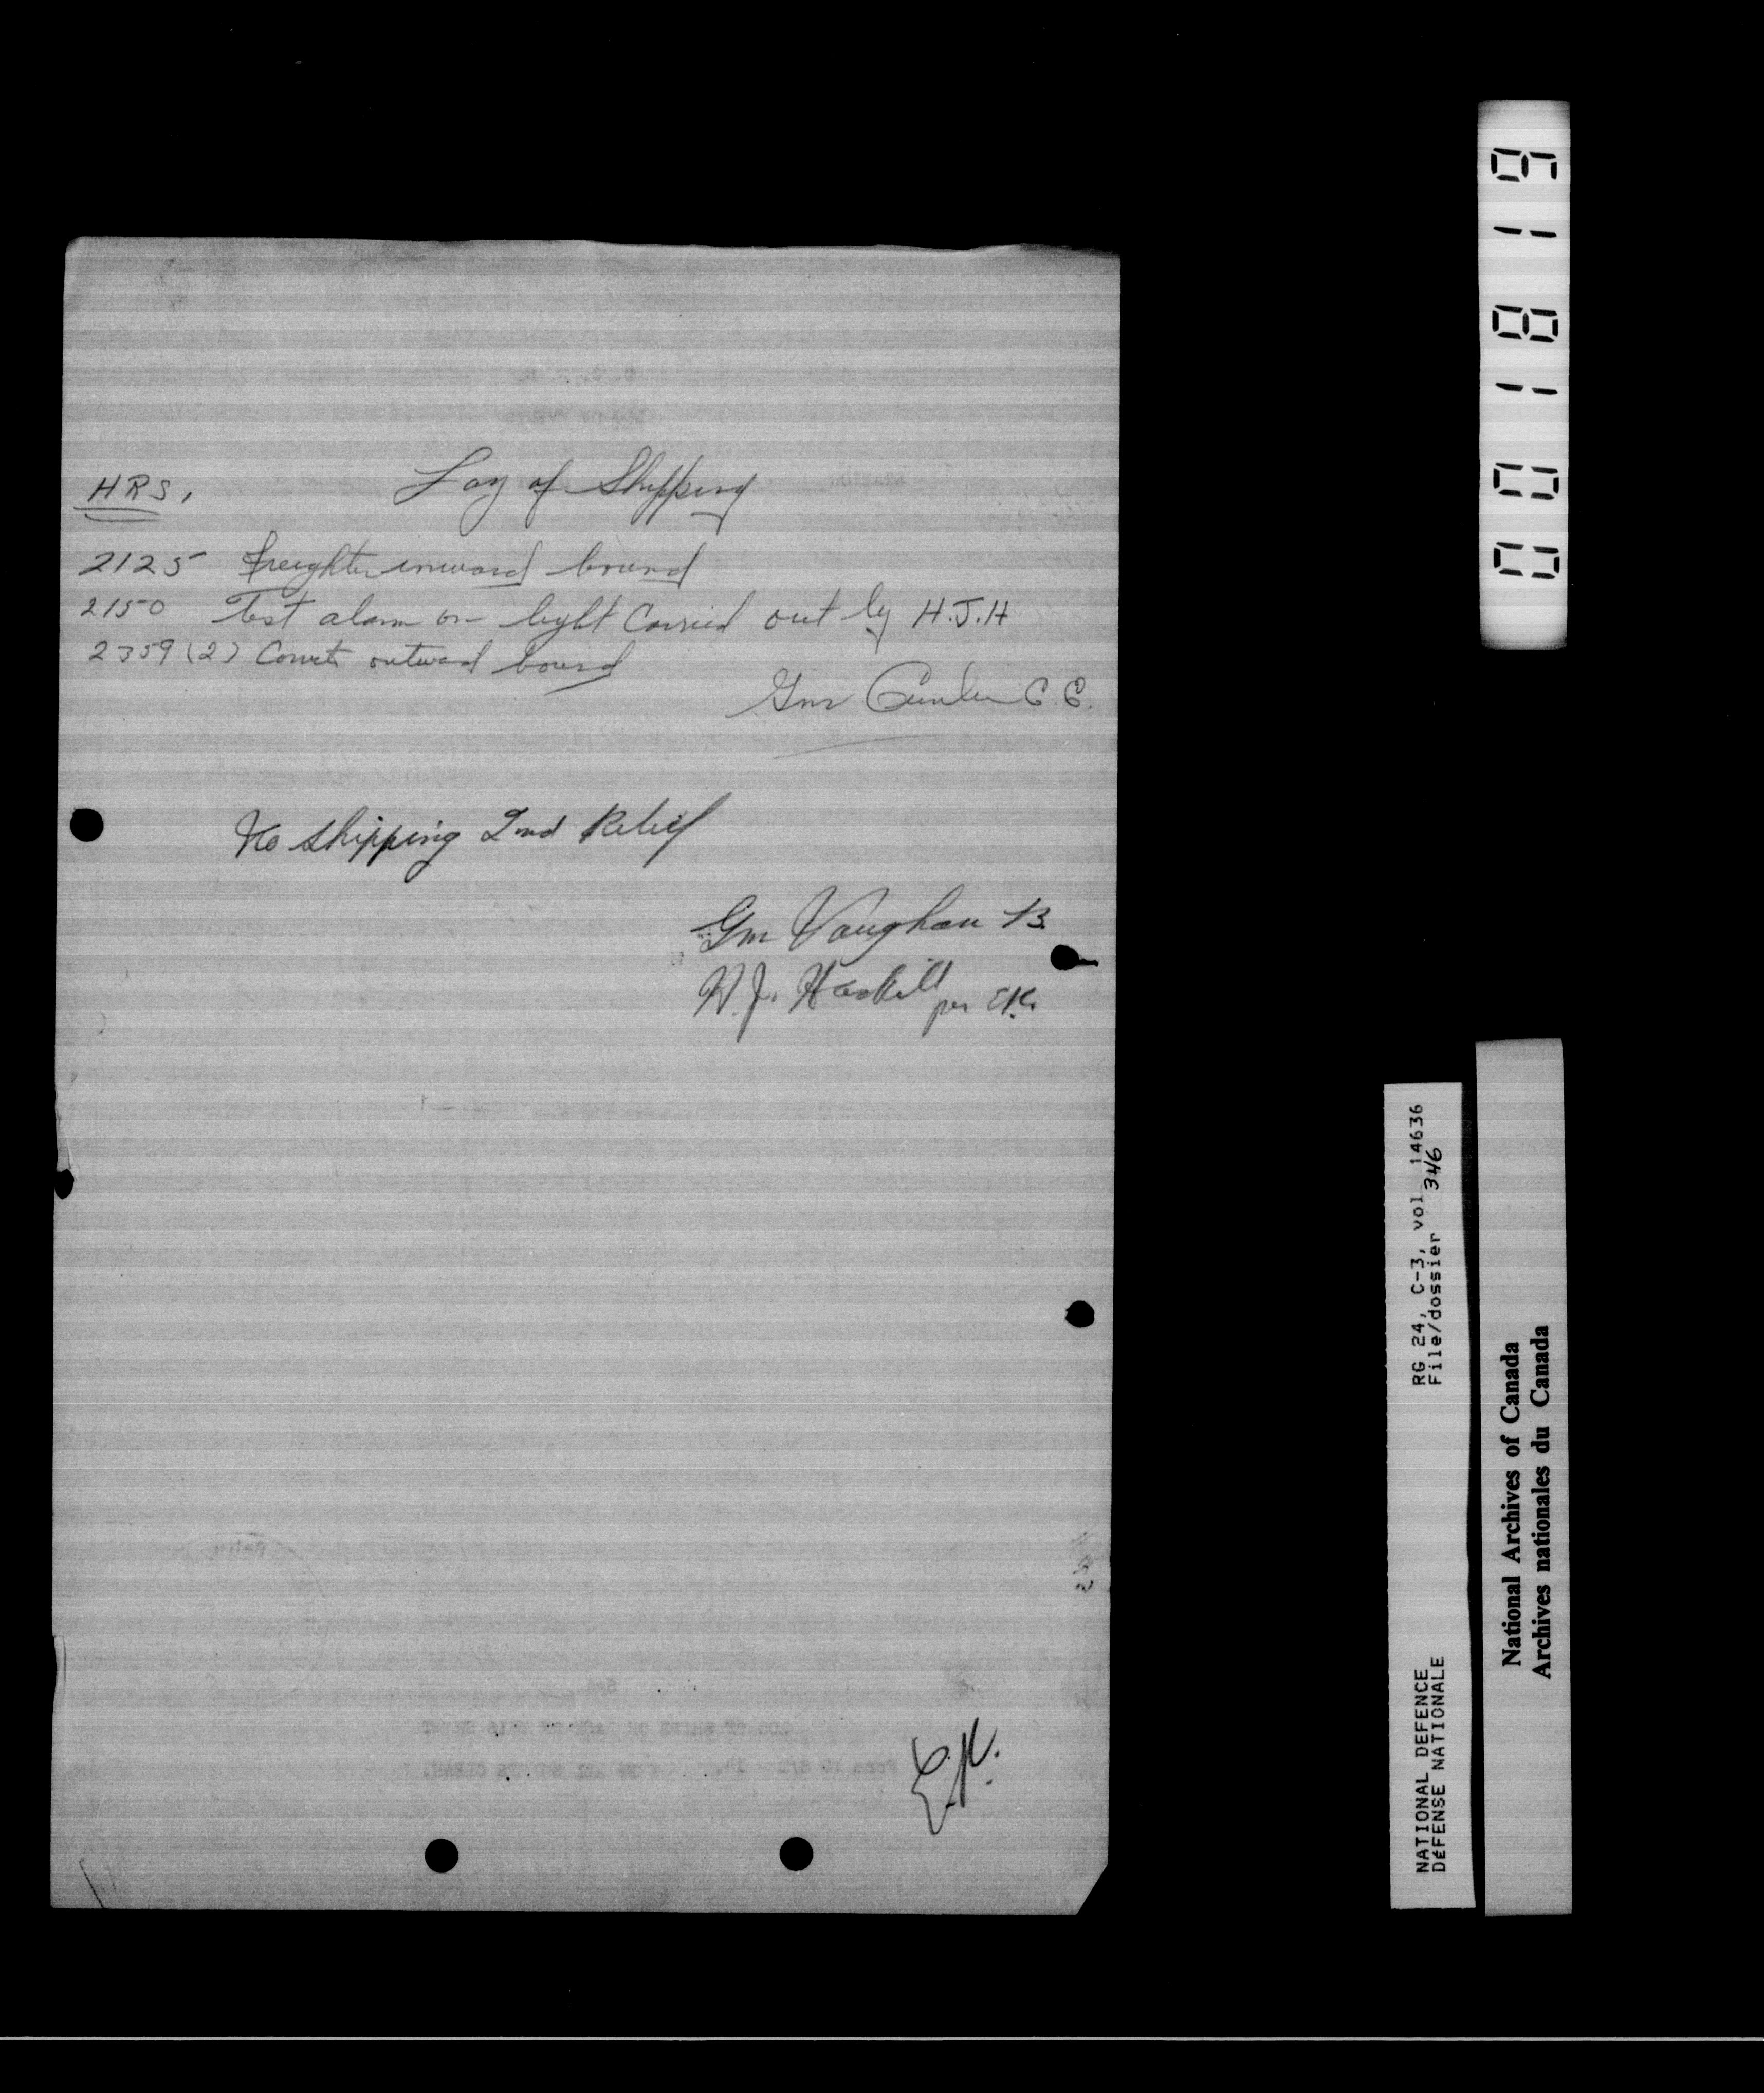 HRS.
Log of Shipping
2125 freighter inward bound
2150 Test alarm on light Carried out by H.J.H
2359 (2) Corvets outward bound
Gnr C.C.
No shipping 2nd Relief
Gnr Vaughan B.
H.J. Haskill per E.K.
E.K.
001819
RG 24, C-3, vol 14636
File/dossier 346
NATIONAL DEFENCE
DÉFENSE NATIONALE
National Archives of Canada
Archives nationales du Canada